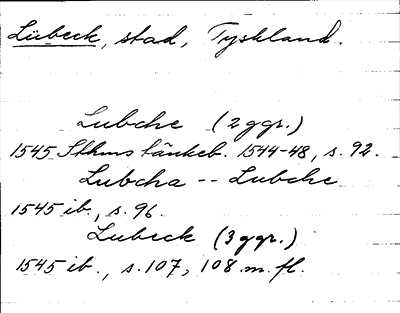 Lübeck, stad, Tyskland.
Lubche (2 ggr.)
1545 Sthms tänkeb. 1544-48, s. 92.
Lubcha -- Lubche
1545 ib., s. 96.
Lubeck (3 ggr.)
1545 ib., s. 107, 108 m. fl.